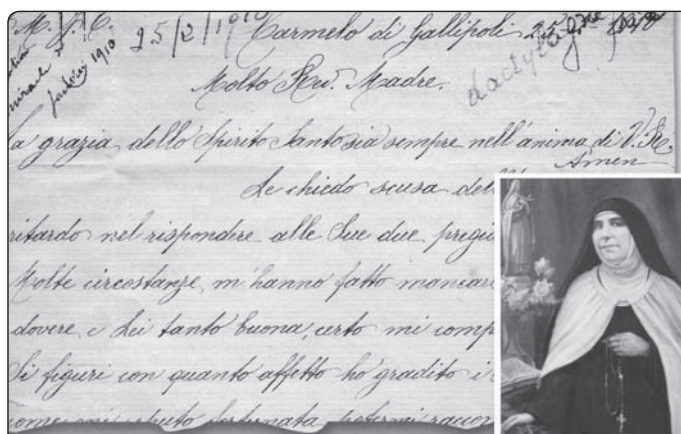 J. M. J. T. 25/2/1910 Carmelo di Gallipoli
miracle
1910
Molto Rev. Madre.
dactylo
La grazia dello Spirito Santo sia sempre nell'anima di V. R.
Amen
Le chiedo scusa del
ritardo nel rispondere alle Sue due pregi
Molte circostanze, m'hanno fatto mancar
dovere, e Lei tanto buona, certo mi comp
Si figuri con quanto affetto ho gradito i
come mi reputo fortunata potermi raccom